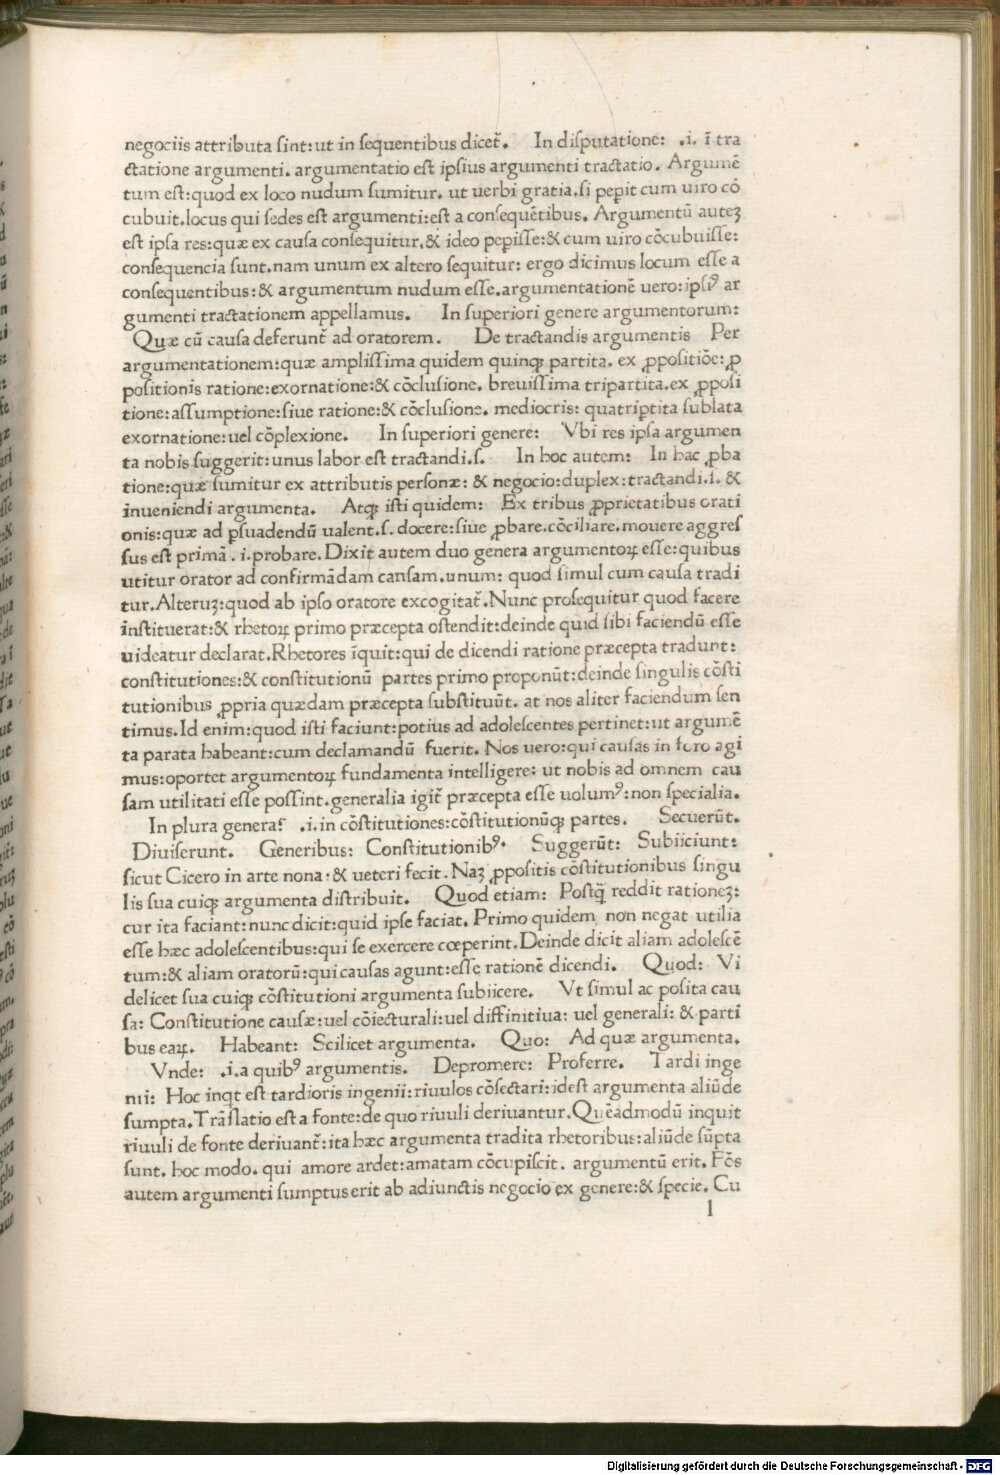 negociis attributa sint:ut in sequentibus dicet̃. In disputatione: .i. ĩ tra
ctatione argumenti. argumentatio est ipsius argumenti tractatio. Argumẽ
tum est:quod ex loco nudum sumitur. ut uerbi gratia.si pepit cum uiro cõ
cubuit.locus qui sedes est argumenti:est a consequẽtibus. Argumentũ auteꝫ
est ipsa res:quæ ex causa consequitur.& ideo pepisse:& cum uiro cõcubuisse:
consequencia sunt.nam unum ex altero sequitur: ergo dicimus locum esse a
consequentibus:& argumentum nudum esse.argumentationẽ uero:ipsiꝰ ar
gumenti tractationem appellamus. In superiori genere argumentorum:
Quæ cũ causa deferunt̃ ad oratorem. De tractandis argumentis Per
argumentationem:quæ amplissima quidem quinqꝫ partita. ex ꝓpositiõe:ꝓ
positionis ratione:exornatione:& cõclusione. breuissima tripartita.ex ꝓposi
tione:assumptione:siue ratione:& cõclusione. mediocris: quatriptita sublata
exornatione:uel cõplexione. In superiori genere: Vbi res ipsa argumen
ta nobis suggerit:unus labor est tractandi.s. In hoc autem: In hac ꝓba
tione:quæ sumitur ex attributis personæ: & negocio:duplex:tractandi.s. &
inueniendi argumenta. Atqꝫ isti quidem: Ex tribus ꝓprietatibus orati
onis:quæ ad ꝑsuadendũ ualent.s. docere:siue ꝓbare.cõciliare.mouere aggres
sus est primã .i.probare.Dixit autem duo genera argumentoꝝ esse:quibus
utitur orator ad confirmãdam cansam.unum: quod simul cum causa tradi
tur.Alteruꝫ:quod ab ipso oratore excogitat̃.Nunc prosequitur quod facere
ĩnstituerat:& rhetoꝝ primo præcepta ostendit:deinde quid sibi faciendũ esse
uideatur declarat.Rhetores ĩquit:qui de dicendi ratione præcepta tradunt:
constitutiones:& constitutionũ partes primo proponũt:deinde singulis cõsti
tutionibus ꝓpria quædam præcepta substituũt. at nos aliter faciendum sen
timus.Id enim:quod isti faciunt:potius ad adolescentes pertinet:ut argumẽ
ta parata habeant:cum declamandũ fuerit. Nos uero:qui causas in foro agi
mus:oportet argumentoꝝ fundamenta intelligere: ut nobis ad omnem cau
sam utilitati esse possint.generalia igit̃ præcepta esse uolumꝰ:non specialia.
In plura genera: .i.in cõstitutiones:cõstitutionũqꝫ partes. Secuerũt.
Diuiserunt. Generibus: Constitutionibꝰ. Suggerũt: Subiiciunt:
sicut Cicero in arte nona:& ueteri fecit. Naꝫ ꝓpositis cõstitutionibus singu
lis sua cuiqꝫ argumenta distribuit. Quod etiam: Postq̃ reddit rationeꝫ:
cur ita faciant:nunc dicit:quid ipse faciat. Primo quidem non negat utilia
esse hæc adolescentibus:qui se exercere cœperint.Deinde dicit aliam adolescẽ
tum:& aliam oratorũ:qui causas agunt:esse rationẽ dicendi. Quod: Vi
delicet sua cuiqꝫ cõstitutioni argumenta subiicere. Vt simul ac posita cau
sa: Constitutione causæ:uel cõiecturali:uel diffinitiua: uel generali: & parti
bus eaꝝ. Habeant: Scilicet argumenta. Quo: Ad quæ argumenta.
Vnde: .i.a quibꝰ argumentis. Depromere: Proferre. Tardi inge
nii: Hoc inqt est tardioris ingenii:riuulos cõsectari:idest argumenta aliũde
sumpta.Trãslatio est a fonte:de quo riuuli deriuantur.Quẽadmodũ inquit
riuuli de fonte deriuant̃:ita hæc argumenta tradita rhetoribus:aliũde sũpta
sunt. hoc modo. qui amore ardet:amatam cõcupiscit. argumentũ erit. Fõs
autem argumenti sumptus erit ab adiunctis negocio ex genere:& specie. Cu
l
Digitalisierung gefördert durch die Deutsche Forschungsgemeinschaft - DFG